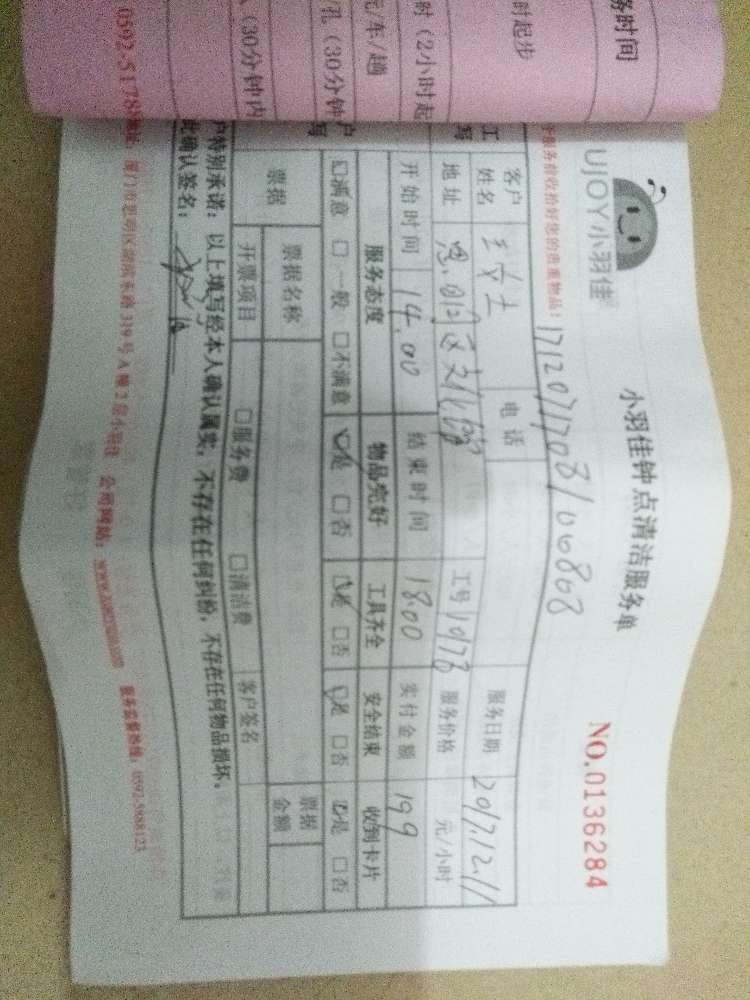 务时间
时起步
时（2小时起
元/车/趟
孔（30分钟
（30分钟内
0592-5178
UJOY小羽佳
小羽佳钟点清洁服务单
NO.0136284
服务前收拾好您的贵重物品：
客户姓名 电话 服务日期 2017.12.11
地址 工号 服务价格 元/小时
开始时间 14.00 结束时间 18.00 实付金额 199
服务态度 物品完好 工具齐全 安全结束 收到卡片
☑满意 □一般 □不满意 ☑是 □否 ☑是 □否 ☑是 □否 ☑是 □否
票据 票据名称 票据金额
开票项目 □服务费 □清洁费 客户签名
户特别承诺：以上填写经本人确认属实，不存在任何纠纷，不存在任何物品损坏。
此确认签名：
厦门市思明区湖滨东路319号A幢2层小羽佳 公司网站： 服务监督热线：0592-5988123